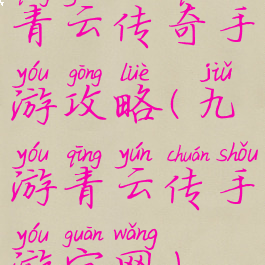 青云传奇手
yóu gōng lüè jiǔ
游攻略(九
yóu qīng yún chuán shǒu
游青云传手
yóu guān wǎng
游官网)